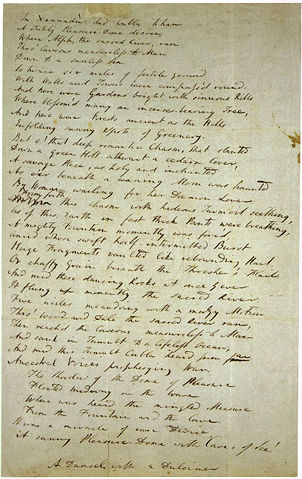 In Xannadù did Cubla Khan
A stately Pleasure-Dome decree;
Where Alph, the sacred River, ran
Thro' Caverns measureless to Man
Down to a sunless Sea.
So twice six miles of fertile ground
With Walls and Towers were compass'd round:
And here were Gardens bright with sinuous Rills
Where blossom'd many an incense-bearing Tree,
And here were Forests ancient as the Hills
Enfolding sunny Spots of Greenery.
But o! that deep romantic Chasm, that slanted
Down a green Hill athwart a cedarn Cover,
A savage Place, as holy and inchanted
As e'er beneath a waning Moon was haunted
By Woman wailing for her Dæmon Lover:
From forth this Chasm with hideous Turmoil seething,
As if this Earth in fast thick Pants were breathing,
A mighty Fountain momently was forc'd,
Amid whose swift half-intermitted Burst
Huge Fragments vaulted like rebounding Hail,
Or chaffy Grain beneath the Thresher's Flail:
And mid these dancing Rocks at once & ever
It flung up momently the sacred River.
Five miles meandering with a mazy Motion
Thro' Wood and Dale the sacred River ran,
Then reach'd the Caverns measureless to Man
And sank in Tumult to a lifeless Ocean;
And mid this Tumult Cubla heard from far
Ancestral Voices prophesying War.
The Shadow of the Dome of Pleasure
Floated midway on the Wave
Where was heard the mingled Measure
From the Fountain and the Cave.
It was a miracle of rare Device,
A sunny Pleasure-Dome with Caves of Ice!
A Damsel with a Dulcimer